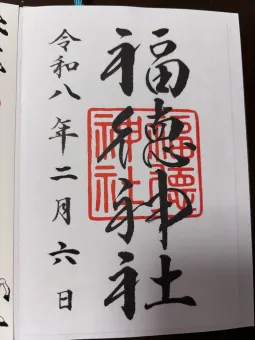 福徳神社
令和八年二月六日
福徳
神社